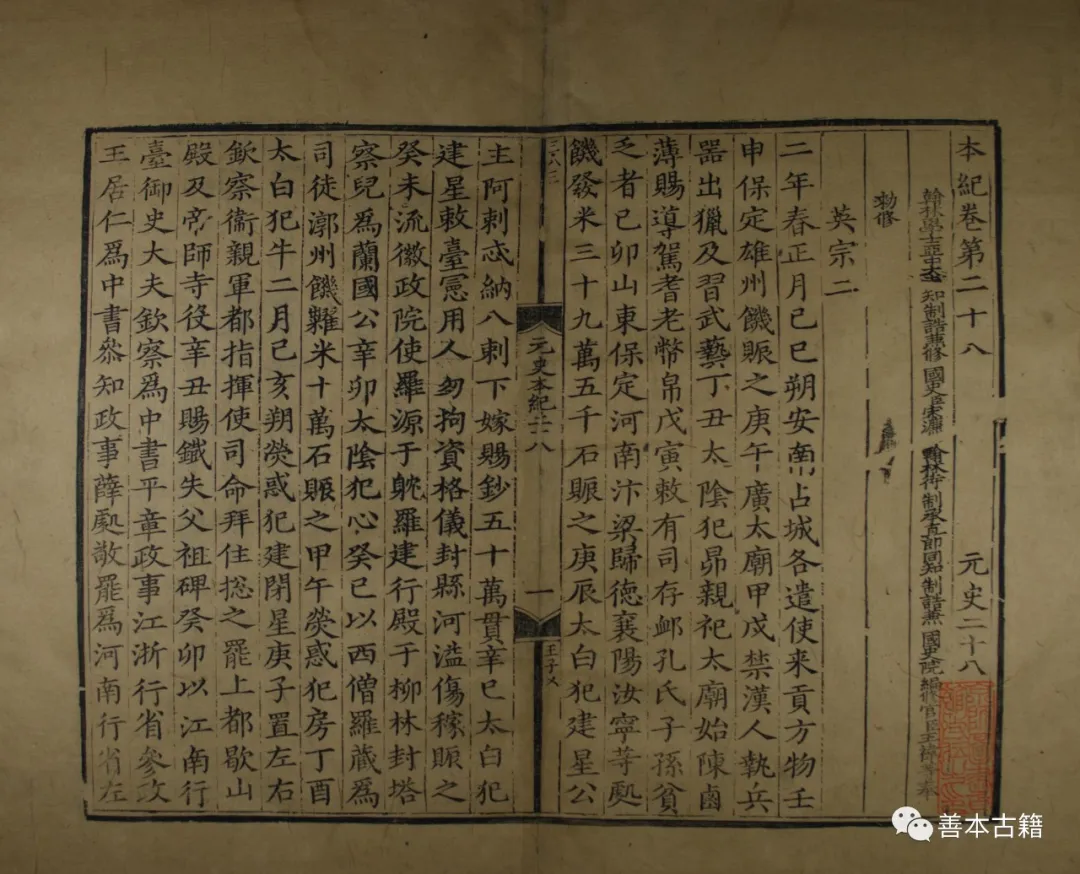 本紀卷第二十八 元史二十八
翰林學士亞中大夫知制誥兼修國史臣宋濂 翰林待制承直郎同知制誥兼國史院編修官臣王禕等奉
勑修
英宗二
二年春正月己巳朔安南占城各遣使来貢方物壬
申保定雄州饑賑之庚午廣太廟甲戌禁漢人執兵
器出獵及習武藝丁丑太陰犯昴親祀太廟始陳鹵
薄賜導駕耆老幣帛戊寅敕有司存䘏孔氏子孫貧
乏者己卯山東保定河南汴梁歸德襄陽汝寧等處
饑發米三十九萬五千石賑之庚辰太白犯建星公
元史本紀廿八
一
主阿剌忒納八剌下嫁賜鈔五十萬貫辛巳太白犯
建星敕臺憲用人勿拘資格儀封縣河溢傷稼賑之
癸未流徽政院使羅源于躭羅建行殿于柳林封塔
察兒爲蘭國公辛卯太陰犯心癸巳以西僧羅藏爲
司徒漷州饑糶米十萬石賑之甲午熒惑犯房丁酉
太白犯牛二月己亥朔熒惑犯建閉星庚子置左右
欽察衞親軍都指揮使司命拜住揔之罷上都歇山
殿及帝師寺役辛丑賜鐵失父祖碑癸卯以江南行
臺御史大夫欽察爲中書平章政事江浙行省參政
王居仁爲中書叅知政事薛處敬罷爲河南行省左
善本古籍